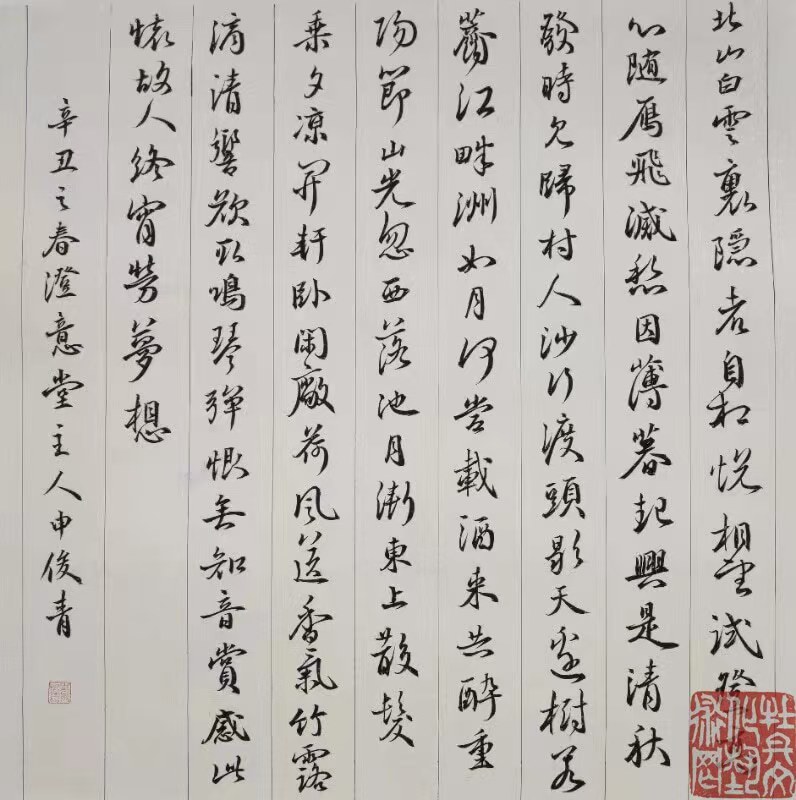 北山白雲裏隱者自相悅相望試登高
心随鴈飛滅愁因薄暮起興是清秋
發時見歸村人沙行渡頭歇天邊樹若
薺江畔洲如月何當載酒來共醉重
陽節山光忽西落池月漸東上散髮
乘夕凉開軒卧閑廠荷風送香氣竹露
滴清響欲取鳴琴彈恨無知音賞感此
懷故人終宵勞夢想
辛丑之春澄意堂主人申俊青